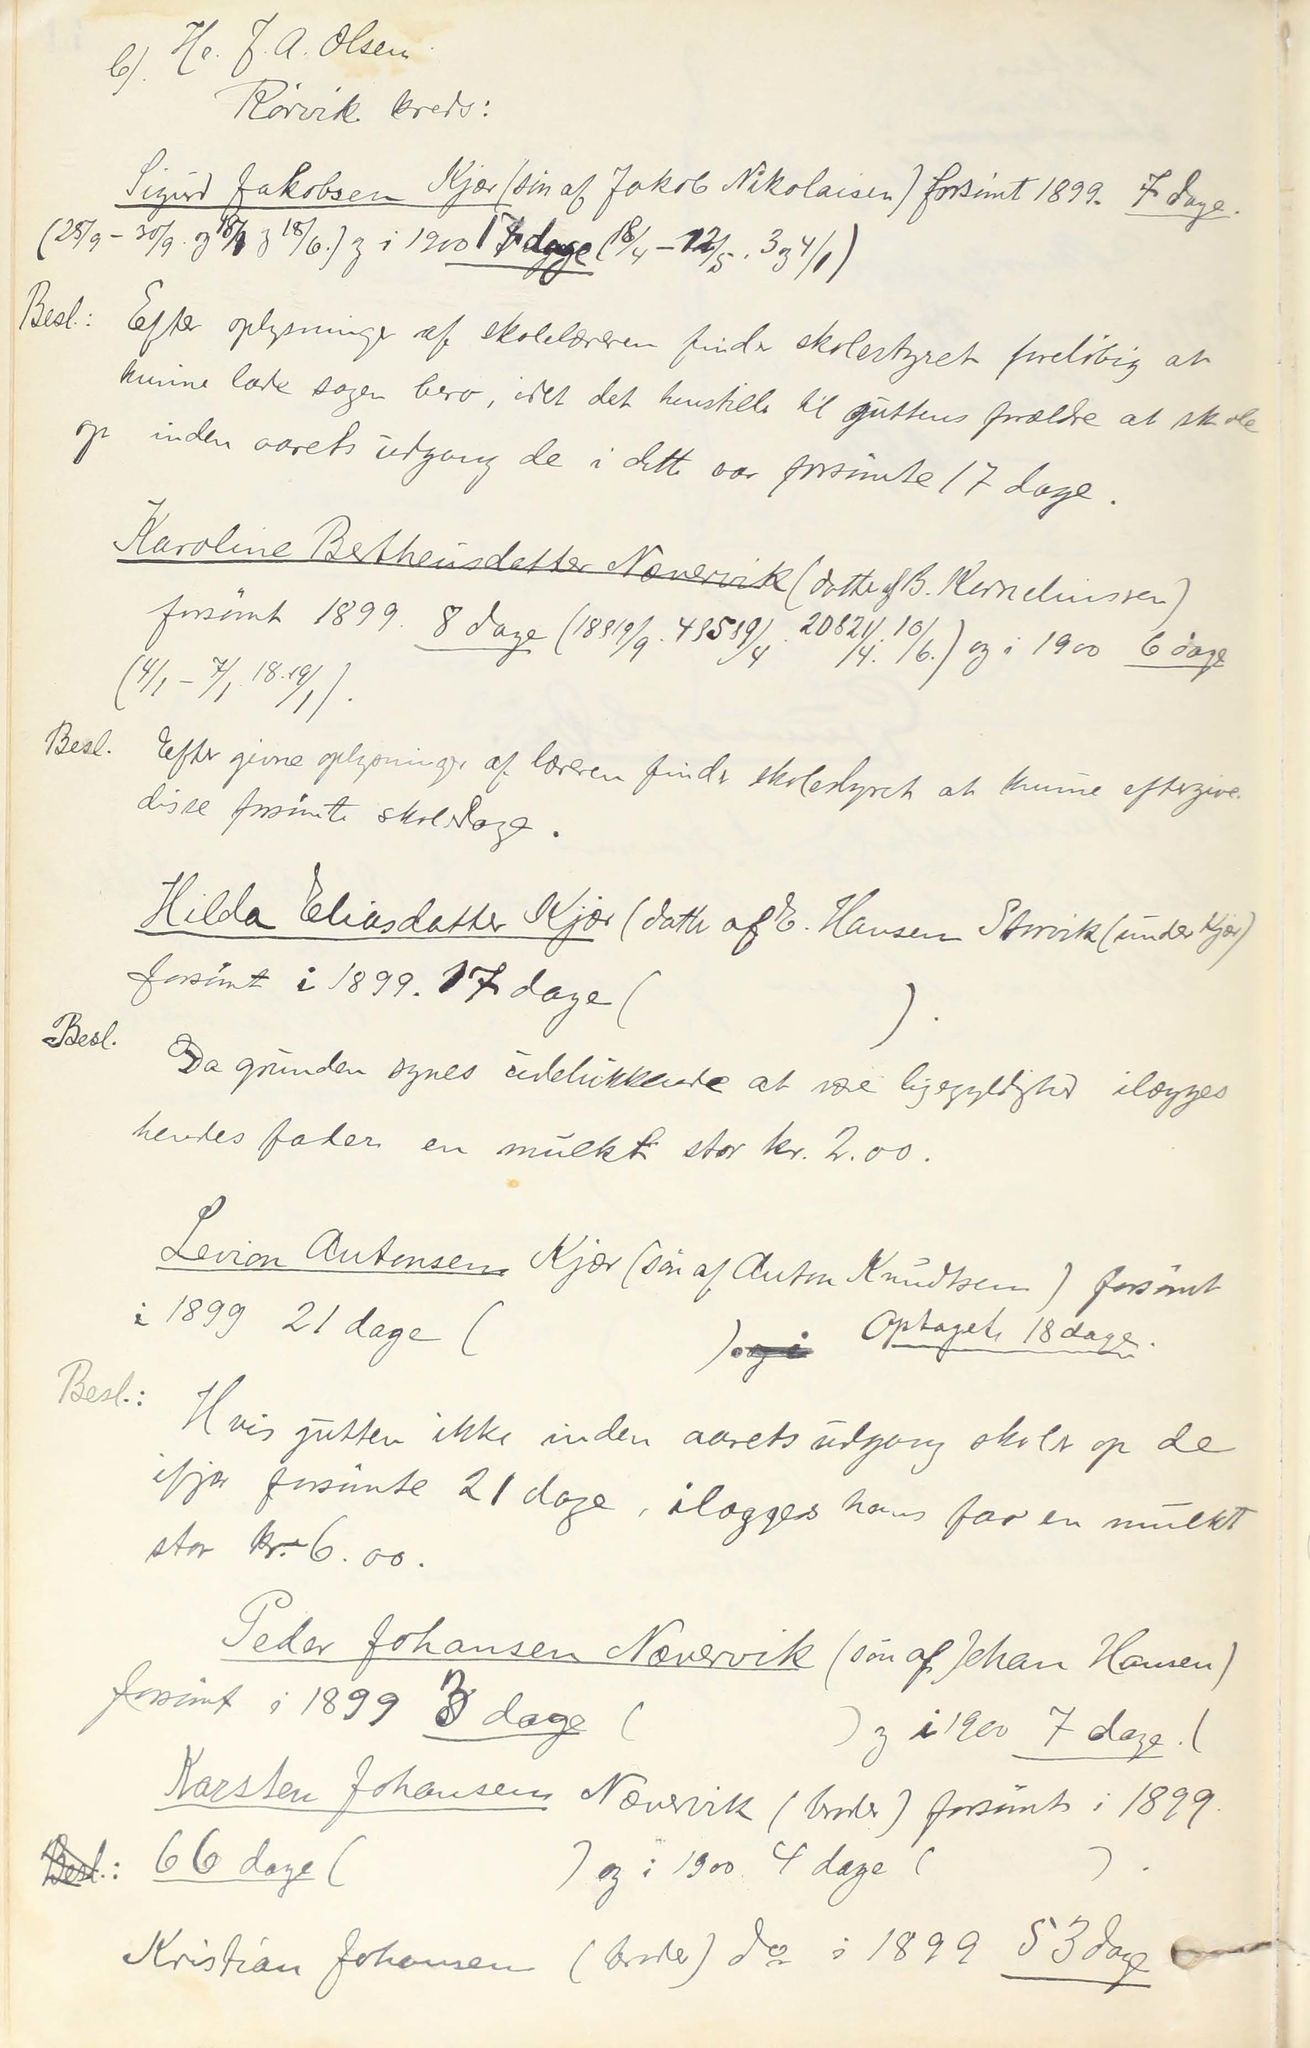 b). Hr. J. A. Olsen
Rørvik kreds:
Sigurd Jakobsen Kjær (søn af Jakob Nikolaisen) forsømt 1899. 7 dage.
(28/9 – 30/9. og 18/6.) og i 1900 17 dage (18/4 – 12/5. 3 og 4/1)
Besl.: Efter oplysninger af skolelæreren finder skolestyret foreløbig at
kunne lade sagen bero, idet det henstilles til guttens forældre at skole
op inden aarets udgang de i dette aar forsømte 17 dage.
Karoline Bertheusdatter Nævervik (datter af B. Kornelinssen)
forsømt 1899. 8 dage (18 & 19/9. 4 & 5 & 9/4. 20 & 21/4. 10/6.) og i 1900 6 dage
(4/1 – 7/1 18.19/1).
Besl. Efter givne oplysninger af læreren finder skolestyret at kunne eftergive
disse forsømte skoledage.
Hilda Eliasdatter Kjær (datter af E. Hansen Storvik (under Kjær)
forsømt i 1899. 17 dage ( ).
Besl. Da grunden synes udelukkende at være ligegyldighed ilægges
hendes fader en mulkt stor kr. 2.00.
Levion Antonsen Kjær (søn af Anton Knudtsen) forsømt
i 1899 21 dage ( ). og i Optaget 18 dage.
Besl.: Hvis gutten ikke inden aarets udgang skoler op de
ifjor forsømte 21 dage, ilægges hans far en mulkt
stor kr. 6.00.
Peder Johansen Nævervik (søn af Johan Hansen)
forsømt i 1899 3 dage ( ) og i 1900 7 dage. (
Karsten Johansen Nævervik (broder) forsømt i 1899.
Besl.: 66 dage ( ) og i 1900 4 dage ( ).
Kristian Johansen (broder) do i 1899 53 dage